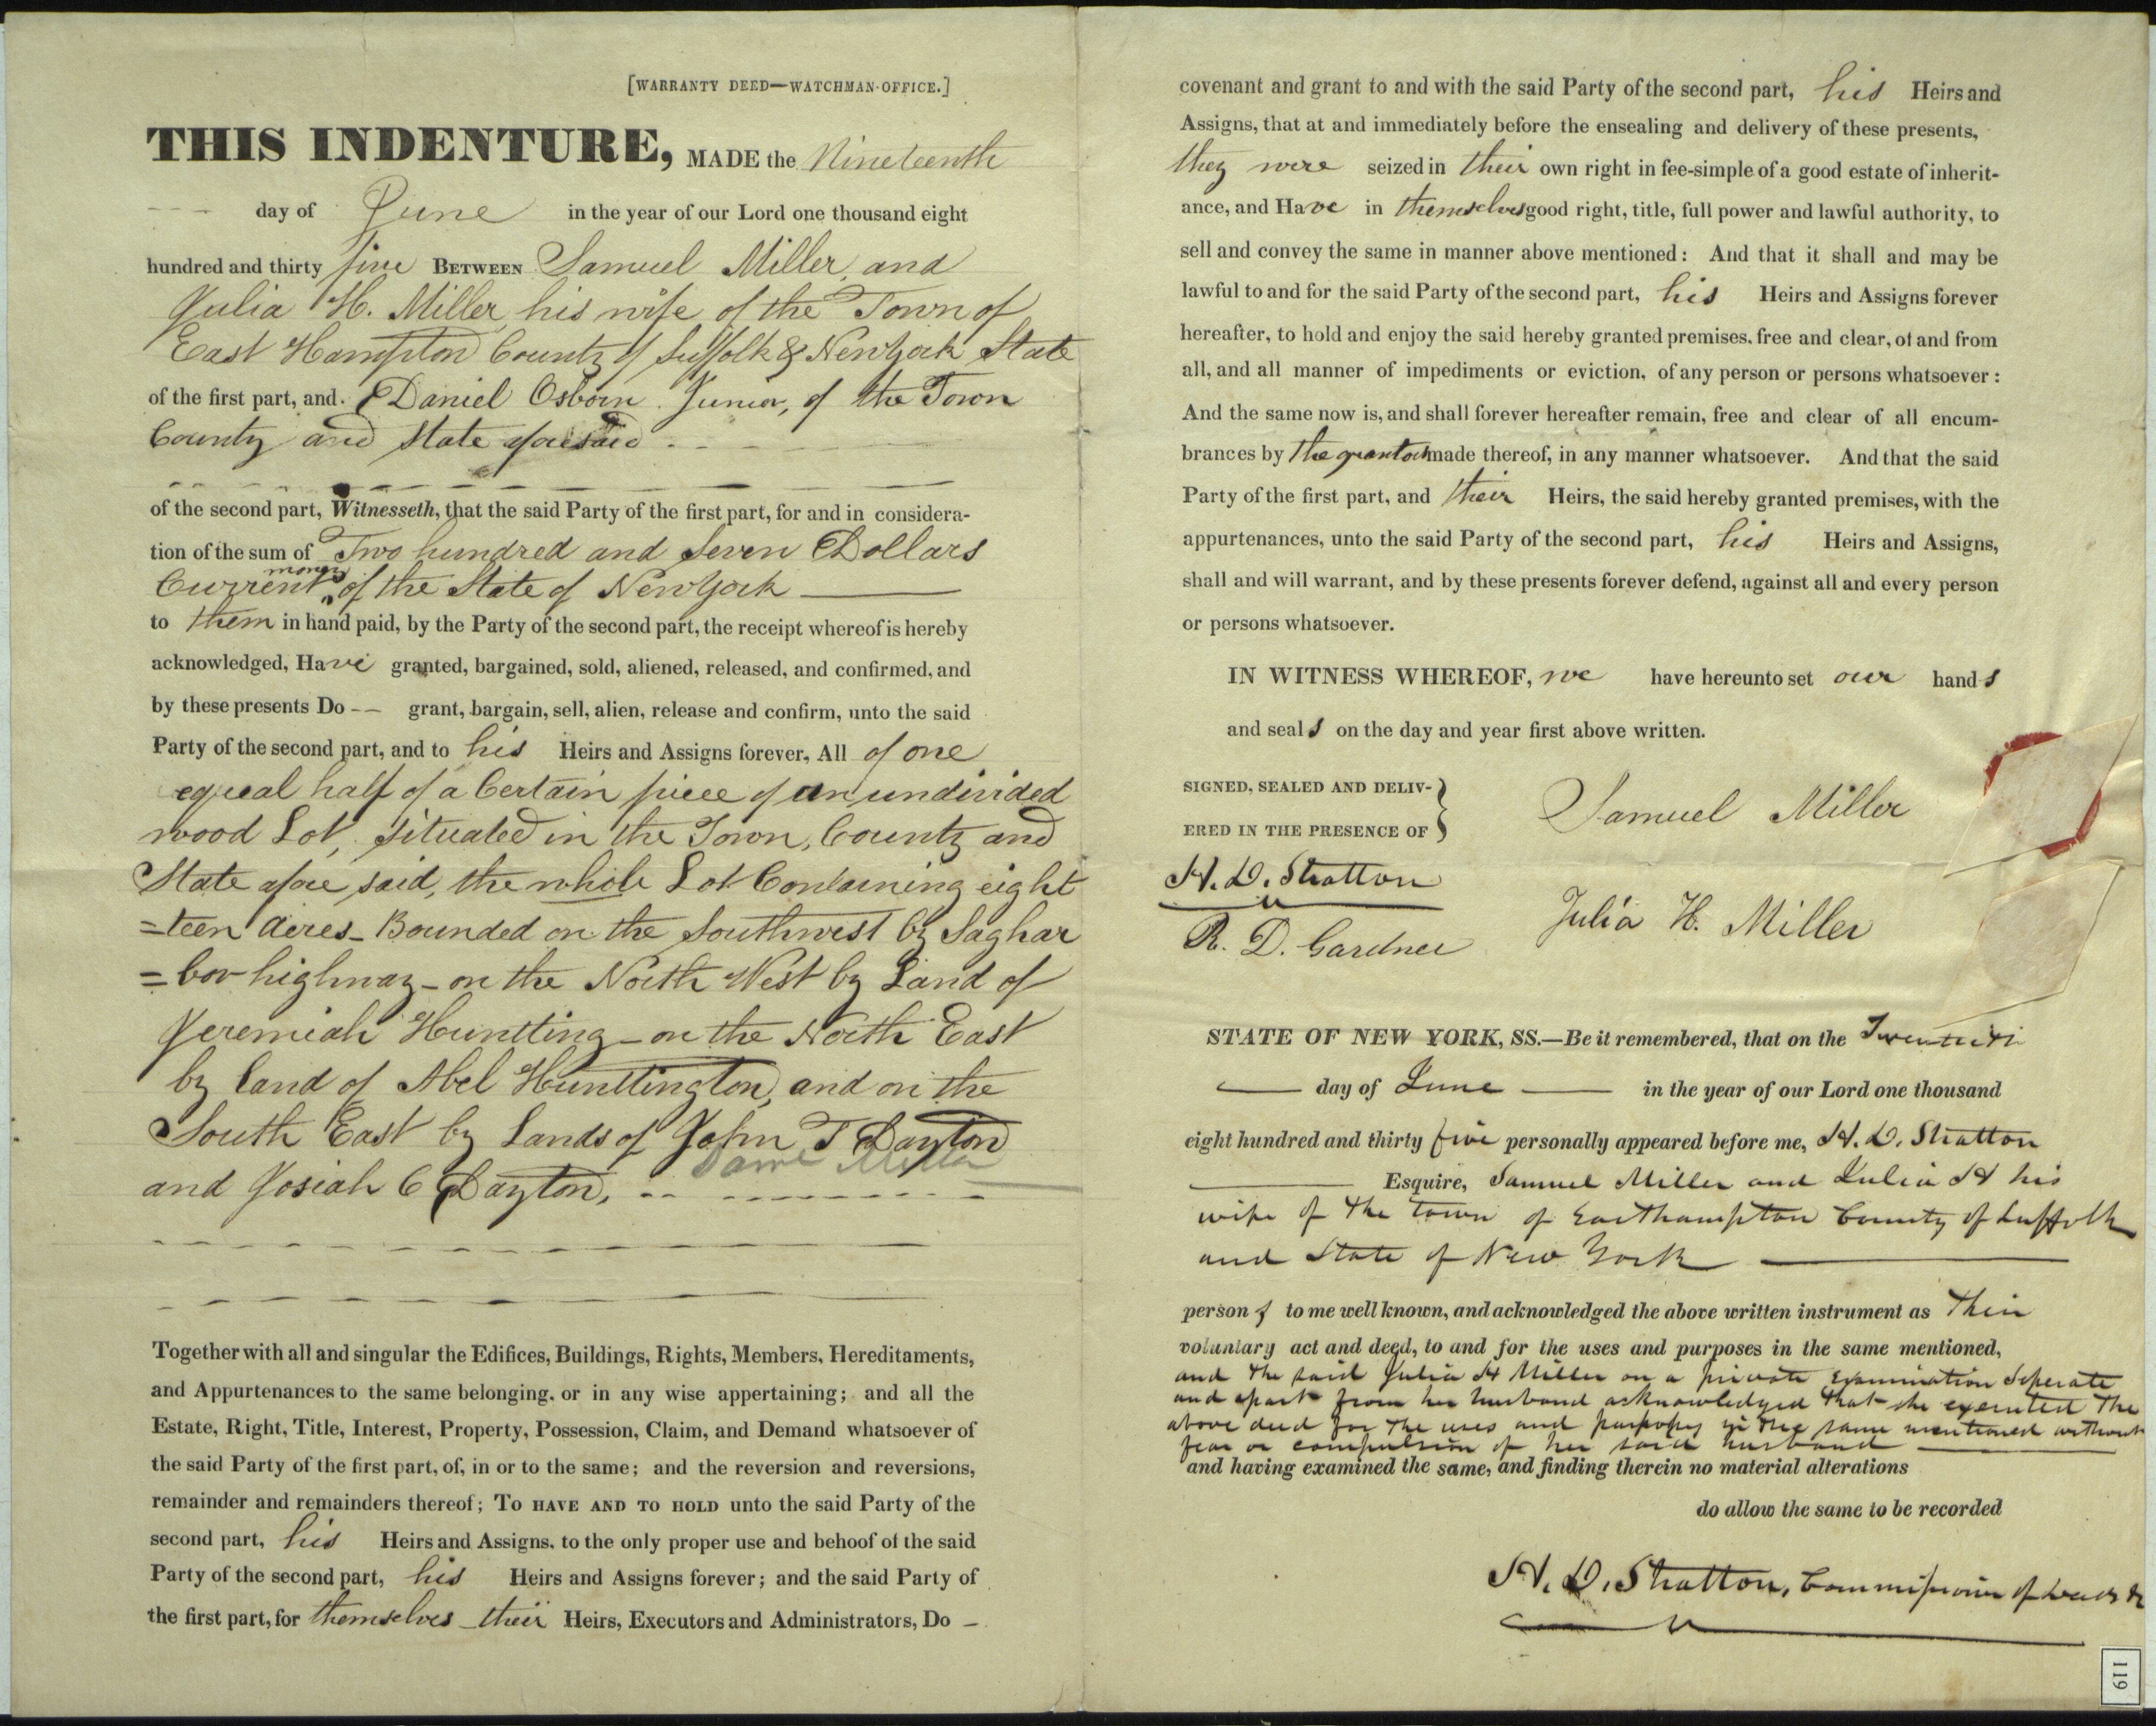 [WARRANTY DEED—WATCHMAN-OFFICE.]
THIS INDENTURE, MADE the Nineteenth
day of June in the year of our Lord one thousand eight
hundred and thirty five BETWEEN Samuel Miller and
Julia H. Miller his wife of the Town of
East Hampton County of Suffolk & New York State
of the first part, and Daniel Osborn Junior, of the Town
County and State aforesaid
of the second part, Witnesseth, that the said Party of the first part, for and in considera-
tion of the sum of Two hundred and Seven Dollars
Current money of the State of New York
to them in hand paid, by the Party of the second part, the receipt whereof is hereby
acknowledged, Have granted, bargained, sold, aliened, released, and confirmed, and
by these presents Do -- grant, bargain, sell, alien, release and confirm, unto the said
Party of the second part, and to his Heirs and Assigns forever, All of one
equal half of a Certain piece of an undivided
wood Lot, situated in the Town, County and
State afore said, the whole Lot Containing eight
=teen Acres - Bounded on the Southwest by Saghar
=bor highway - on the North West by Land of
Jeremiah Huntting - on the North East
by Land of Abel Hunttington, and on the
South East by Lands of John T Dayton
and Josiah C Dayton,
Together with all and singular the Edifices, Buildings, Rights, Members, Hereditaments,
and Appurtenances to the same belonging, or in any wise appertaining; and all the
Estate, Right, Title, Interest, Property, Possession, Claim, and Demand whatsoever of
the said Party of the first part, of, in or to the same; and the reversion and reversions,
remainder and remainders thereof; TO HAVE AND TO HOLD unto the said Party of the
second part, his Heirs and Assigns, to the only proper use and behoof of the said
Party of the second part, his Heirs and Assigns forever; and the said Party of
the first part, for themselves - their Heirs, Executors and Administrators, Do -
covenant and grant to and with the said Party of the second part, his Heirs and
Assigns, that at and immediately before the ensealing and delivery of these presents,
they were seized in their own right in fee-simple of a good estate of inherit-
ance, and Have in themselves good right, title, full power and lawful authority, to
sell and convey the same in manner above mentioned: And that it shall and may be
lawful to and for the said Party of the second part, his Heirs and Assigns forever
hereafter, to hold and enjoy the said hereby granted premises, free and clear, of and from
all, and all manner of impediments or eviction, of any person or persons whatsoever:
And the same now is, and shall forever hereafter remain, free and clear of all encum-
brances by the grantors made thereof, in any manner whatsoever. And that the said
Party of the first part, and their Heirs, the said hereby granted premises, with the
appurtenances, unto the said Party of the second part, his Heirs and Assigns,
shall and will warrant, and by these presents forever defend, against all and every person
or persons whatsoever.
IN WITNESS WHEREOF, we have hereunto set our hands
and seals on the day and year first above written.
SIGNED, SEALED AND DELIV-
ERED IN THE PRESENCE OF
Samuel Miller
H. D. Stratton
R. D. Gardner
Julia H. Miller
STATE OF NEW YORK, SS.—Be it remembered, that on the Twentieth
day of June in the year of our Lord one thousand
eight hundred and thirty five personally appeared before me, H. D. Stratton
Esquire, Samuel Miller and Julia H his
wife of the town of Easthampton County of Suffolk
and State of New York
persons to me well known, and acknowledged the above written instrument as their
voluntary act and deed, to and for the uses and purposes in the same mentioned,
and the said Julia H Miller on a private examination Seperate
and apart from her husband acknowledged that she executed the
above deed for the uses and purposes in the same mentioned without
fear or compulsion of her said husband
and having examined the same, and finding therein no material alterations
do allow the same to be recorded
H. D. Stratton, Commissioner of deeds &
119